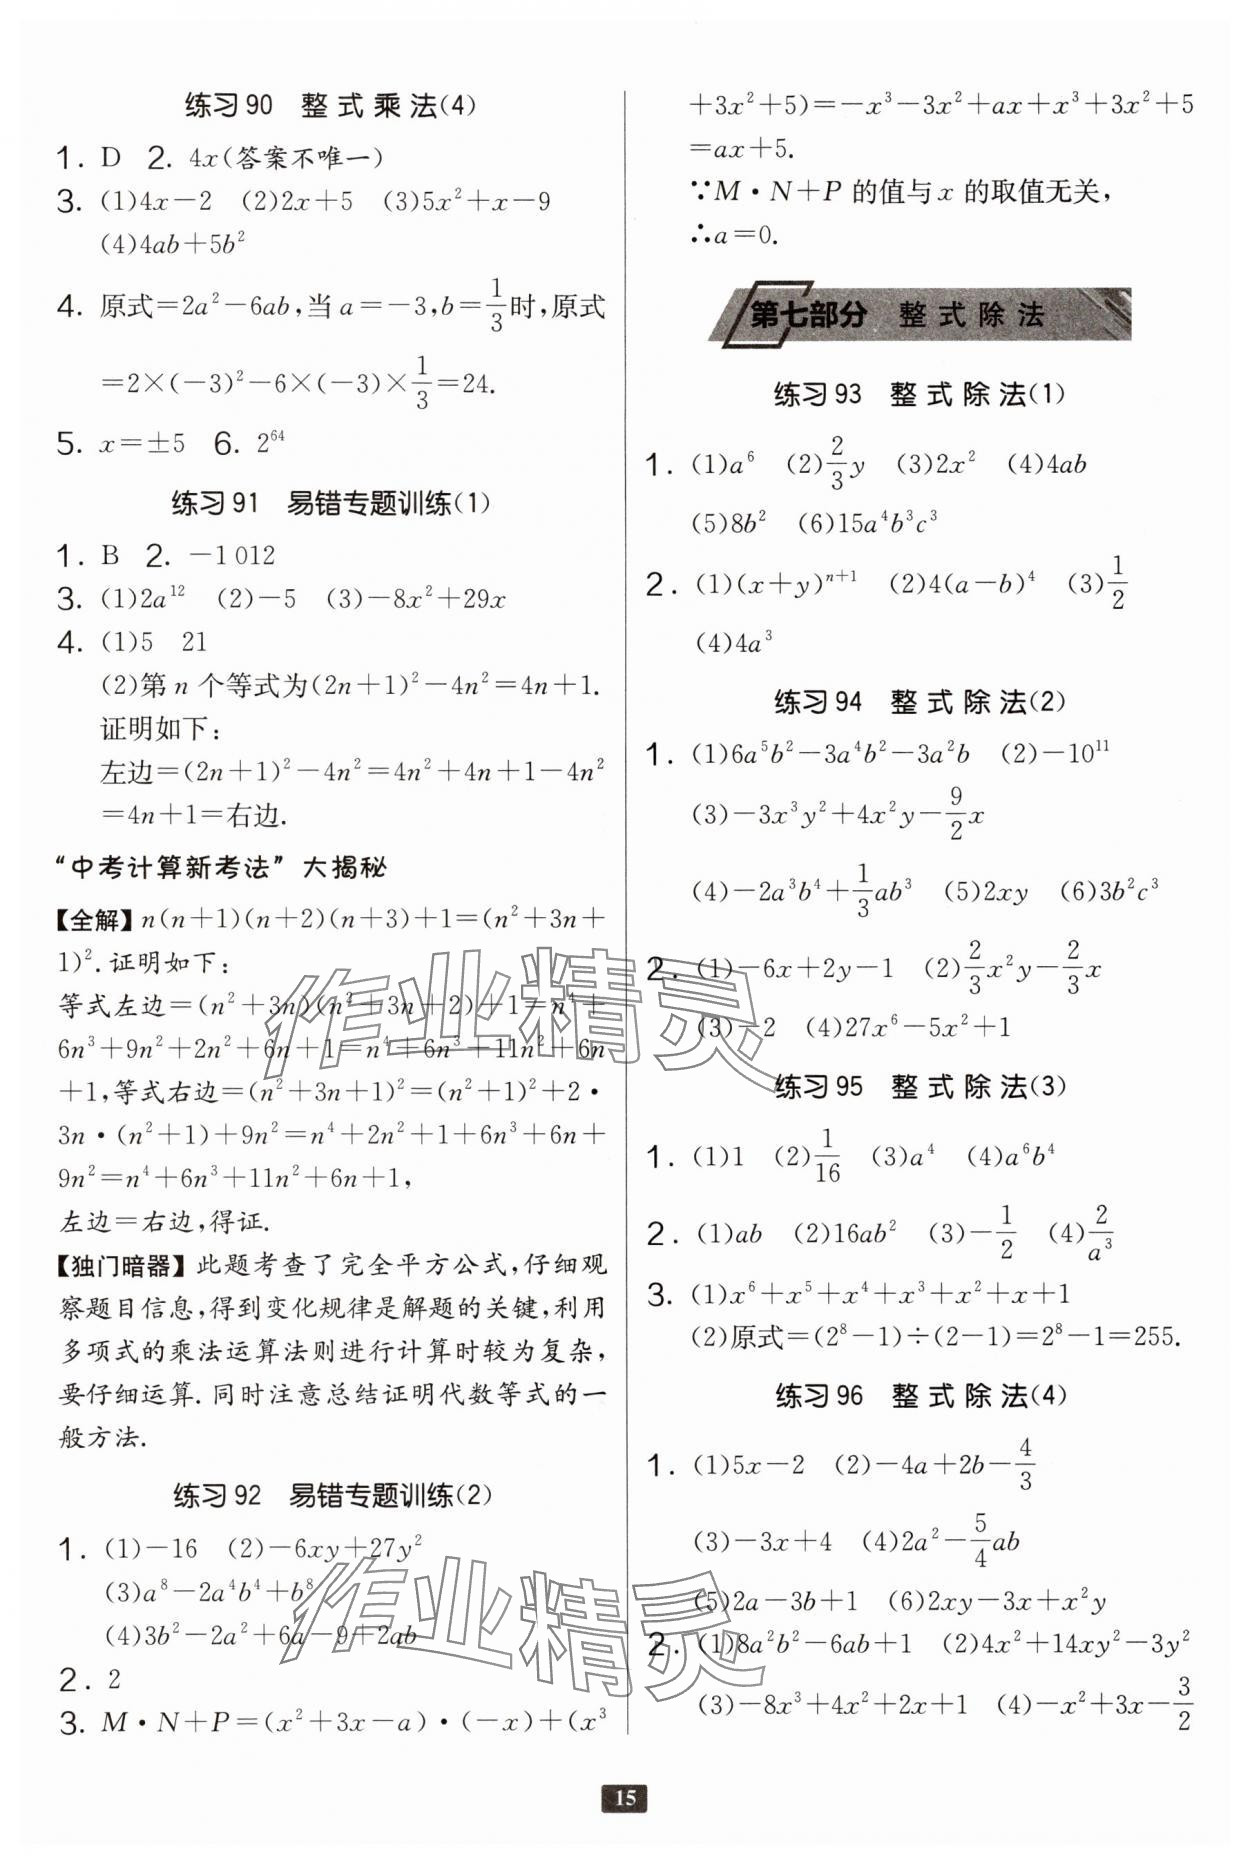 练习90 整式乘法(4)
1. D 2. 4x(答案不唯一)
3. (1)4x-2 (2)2x+5 (3)5x²+x-9
(4)4ab+5b²
4. 原式=2a²-6ab,当a=-3,b=1/3时,原式
=2×(-3)²-6×(-3)×1/3=24.
5. x=±5 6. 2⁶⁴
练习91 易错专题训练(1)
1. B 2. -1 012
3. (1)2a¹² (2)-5 (3)-8x²+29x
4. (1)5 21
(2)第n个等式为(2n+1)²-4n²=4n+1.
证明如下:
左边=(2n+1)²-4n²=4n²+4n+1-4n²
=4n+1=右边.
“中考计算新考法”大揭秘
【全解】n(n+1)(n+2)(n+3)+1=(n²+3n+
1)².证明如下:
等式左边=(n²+3n)(n²+3n+2)+1=n⁴+
6n³+9n²+2n²+6n+1=n⁴+6n³+11n²+6n
+1,等式右边=(n²+3n+1)²=(n²+1)²+2·
3n·(n²+1)+9n²=n⁴+2n²+1+6n³+6n+
9n²=n⁴+6n³+11n²+6n+1,
左边=右边,得证.
【独门暗器】此题考查了完全平方公式,仔细观
察题目信息,得到变化规律是解题的关键,利用
多项式的乘法运算法则进行计算时较为复杂,
要仔细运算.同时注意总结证明代数等式的一
般方法.
练习92 易错专题训练(2)
1. (1)-16 (2)-6xy+27y²
(3)a⁸-2a⁴b⁴+b⁸
(4)3b²-2a²+6a-9+2ab
2. 2
3. M·N+P=(x²+3x-a)·(-x)+(x³
+3x²+5)=-x³-3x²+ax+x³+3x²+5
=ax+5.
∵M·N+P的值与x的取值无关,
∴a=0.
第七部分 整式除法
练习93 整式除法(1)
1. (1)a⁶ (2)2/3y (3)2x² (4)4ab
(5)8b² (6)15a⁴b³c³
2. (1)(x+y)ⁿ⁺¹ (2)4(a-b)⁴ (3)1/2
(4)4a³
练习94 整式除法(2)
1. (1)6a⁵b²-3a⁴b²-3a²b (2)-10¹¹
(3)-3x³y²+4x²y-9/2x
(4)-2a³b⁴+1/3ab³ (5)2xy (6)3b²c³
2. (1)-6x+2y-1 (2)2/3x²y-2/3x
(3)-2 (4)27x⁶-5x²+1
练习95 整式除法(3)
1. (1)1 (2)1/16 (3)a⁴ (4)a⁶b⁴
2. (1)ab (2)16ab² (3)-1/2 (4)2/a³
3. (1)x⁶+x⁵+x⁴+x³+x²+x+1
(2)原式=(2⁸-1)÷(2-1)=2⁸-1=255.
练习96 整式除法(4)
1. (1)5x-2 (2)-4a+2b-4/3
(3)-3x+4 (4)2a²-5/4ab
(5)2a-3b+1 (6)2xy-3x+x²y
2. (1)8a²b²-6ab+1 (2)4x²+14xy²-3y²
(3)-8x³+4x²+2x+1 (4)-x²+3x-3/2
作业精灵
作业精灵
15